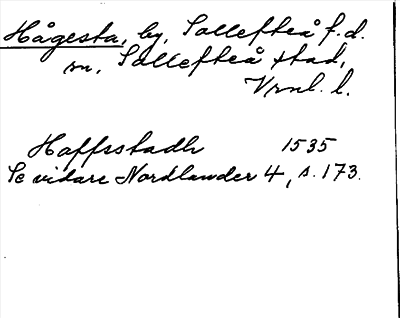 Hågesta, by, Sollefteå f.d.
sn, Sollefteå stad,
Vrnl. l.
Haffsstadh 1535
Se vidare Nordlander 4, s. 173.